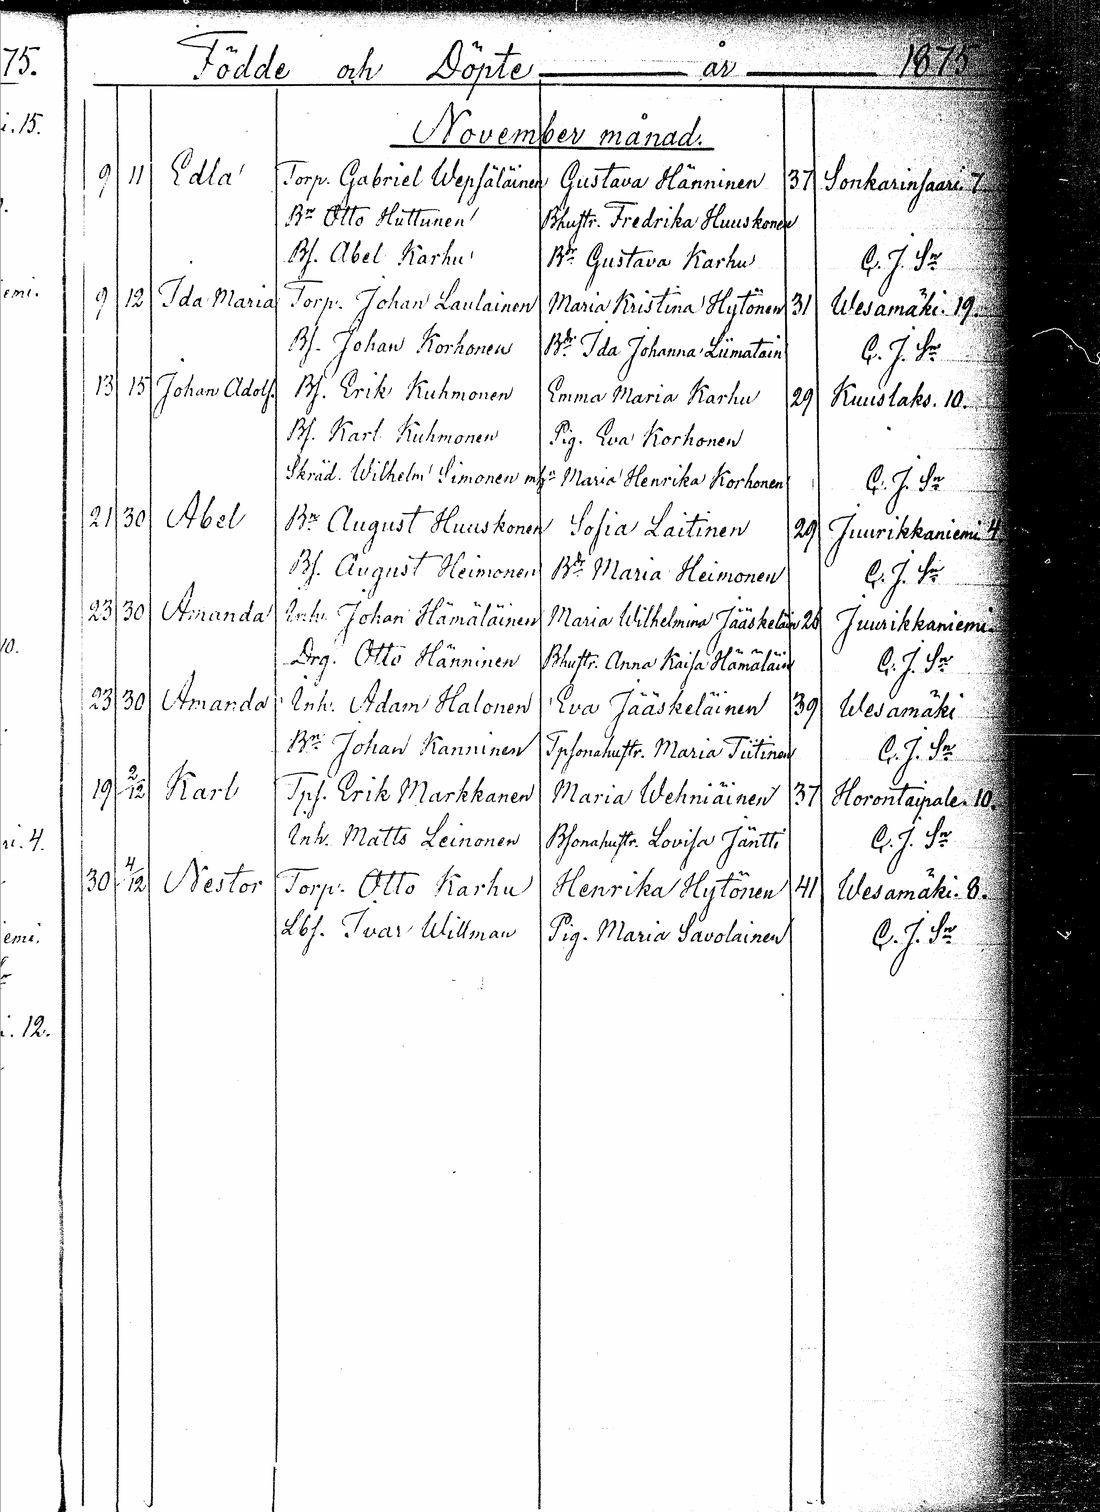 75. Födde och Döpte år 1875
i. 15.
November månad.
9 11 Edla Torp. Gabriel Wepsäläinen Gustava Hänninen 37 Sonkarinsaari. 7
Bn Otto Huttunen Bhustr. Fredrika Huuskonen
Bs. Abel Karhu Bn Gustava Karhu C. J. Sn
emi.
9 12 Ida Maria Torp. Johan Laulainen Maria Kristina Hytönen 31 Wesamäki. 19.
Bs. Johan Korhonen Bdr Ida Johanna Liimatain C. J. Sn
13 15 Johan Adolf. Bs. Erik Kuhmonen Emma Maria Karhu 29 Kuuslaks. 10.
Bs. Karl Kuhmonen Pig. Eva Korhonen
Skräd. Wilhelm Simonen mhn Maria Henrika Korhonen C. J. Sn
21 30 Abel Bn August Huuskonen Sofia Laitinen 29 Juurikkaniemi 4
Bs. August Heimonen Bdr Maria Heimonen C. J. Sn
23 30 Amanda Inh. Johan Hämäläinen Maria Wilhelmina Jääskeläin 26 Juurikkaniemi.
10.
Drg. Otto Hänninen Bhustr. Anna Kaisa Hämäläin C. J. Sn
23 30 Amanda Inh. Adam Halonen Eva Jääskeläinen 39 Wesamäki
Bn Johan Kanninen Tpsonahustr. Maria Tiitinen C. J. Sn
19 2/12 Karl Tps. Erik Markkanen Maria Wehniäinen 37 Horontaipale. 10.
ri. 4.
Inh. Matts Leinonen Bsonahustr. Lovisa Jäntti C. J. Sn
30 4/12 Nestor Torp. Otto Karhu Henrika Hytönen 41 Wesamäki. 8.
Lbf. Ivar Willman Pig. Maria Savolainen C. J. Sn
emi.
i. 12.